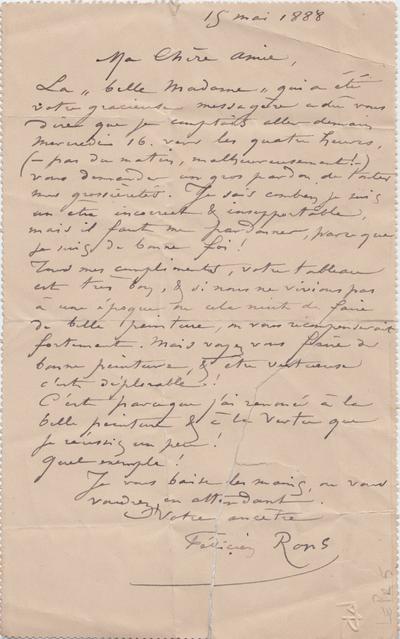 15 mai 1888
Ma Chère Amie,
La „ belle Madame „ qui a été
votre gracieuse messagère a du vous
dire que je comptais aller demain
mercredi 16. vers les quatre heures,
(— pas du matin, malheureusement! —)
vous demander un gros pardon de toutes
mes grossièretés. Je sais combien je suis
un être incorrect & insupportable,
mais il faut me pardonner, parce que
je suis de bonne foi!
Tous mes compliments, votre tableau
est très bon, & si nous ne vivions pas
à une époque où cela nuit de faire
de belle peinture, on vous récompenserait
fortement. Mais voyez vous faire de
bonne peinture, & être vertueuse
c'est déplorable!
C'est parceque j'ai renoncé à la
belle peinture & à la vertu que
je réussis un peu!
Quel exemple!
Je vous baise les mains, où vous
voudrez, en attendant.
Votre ancêtre
Félicien Rops
LEPR5